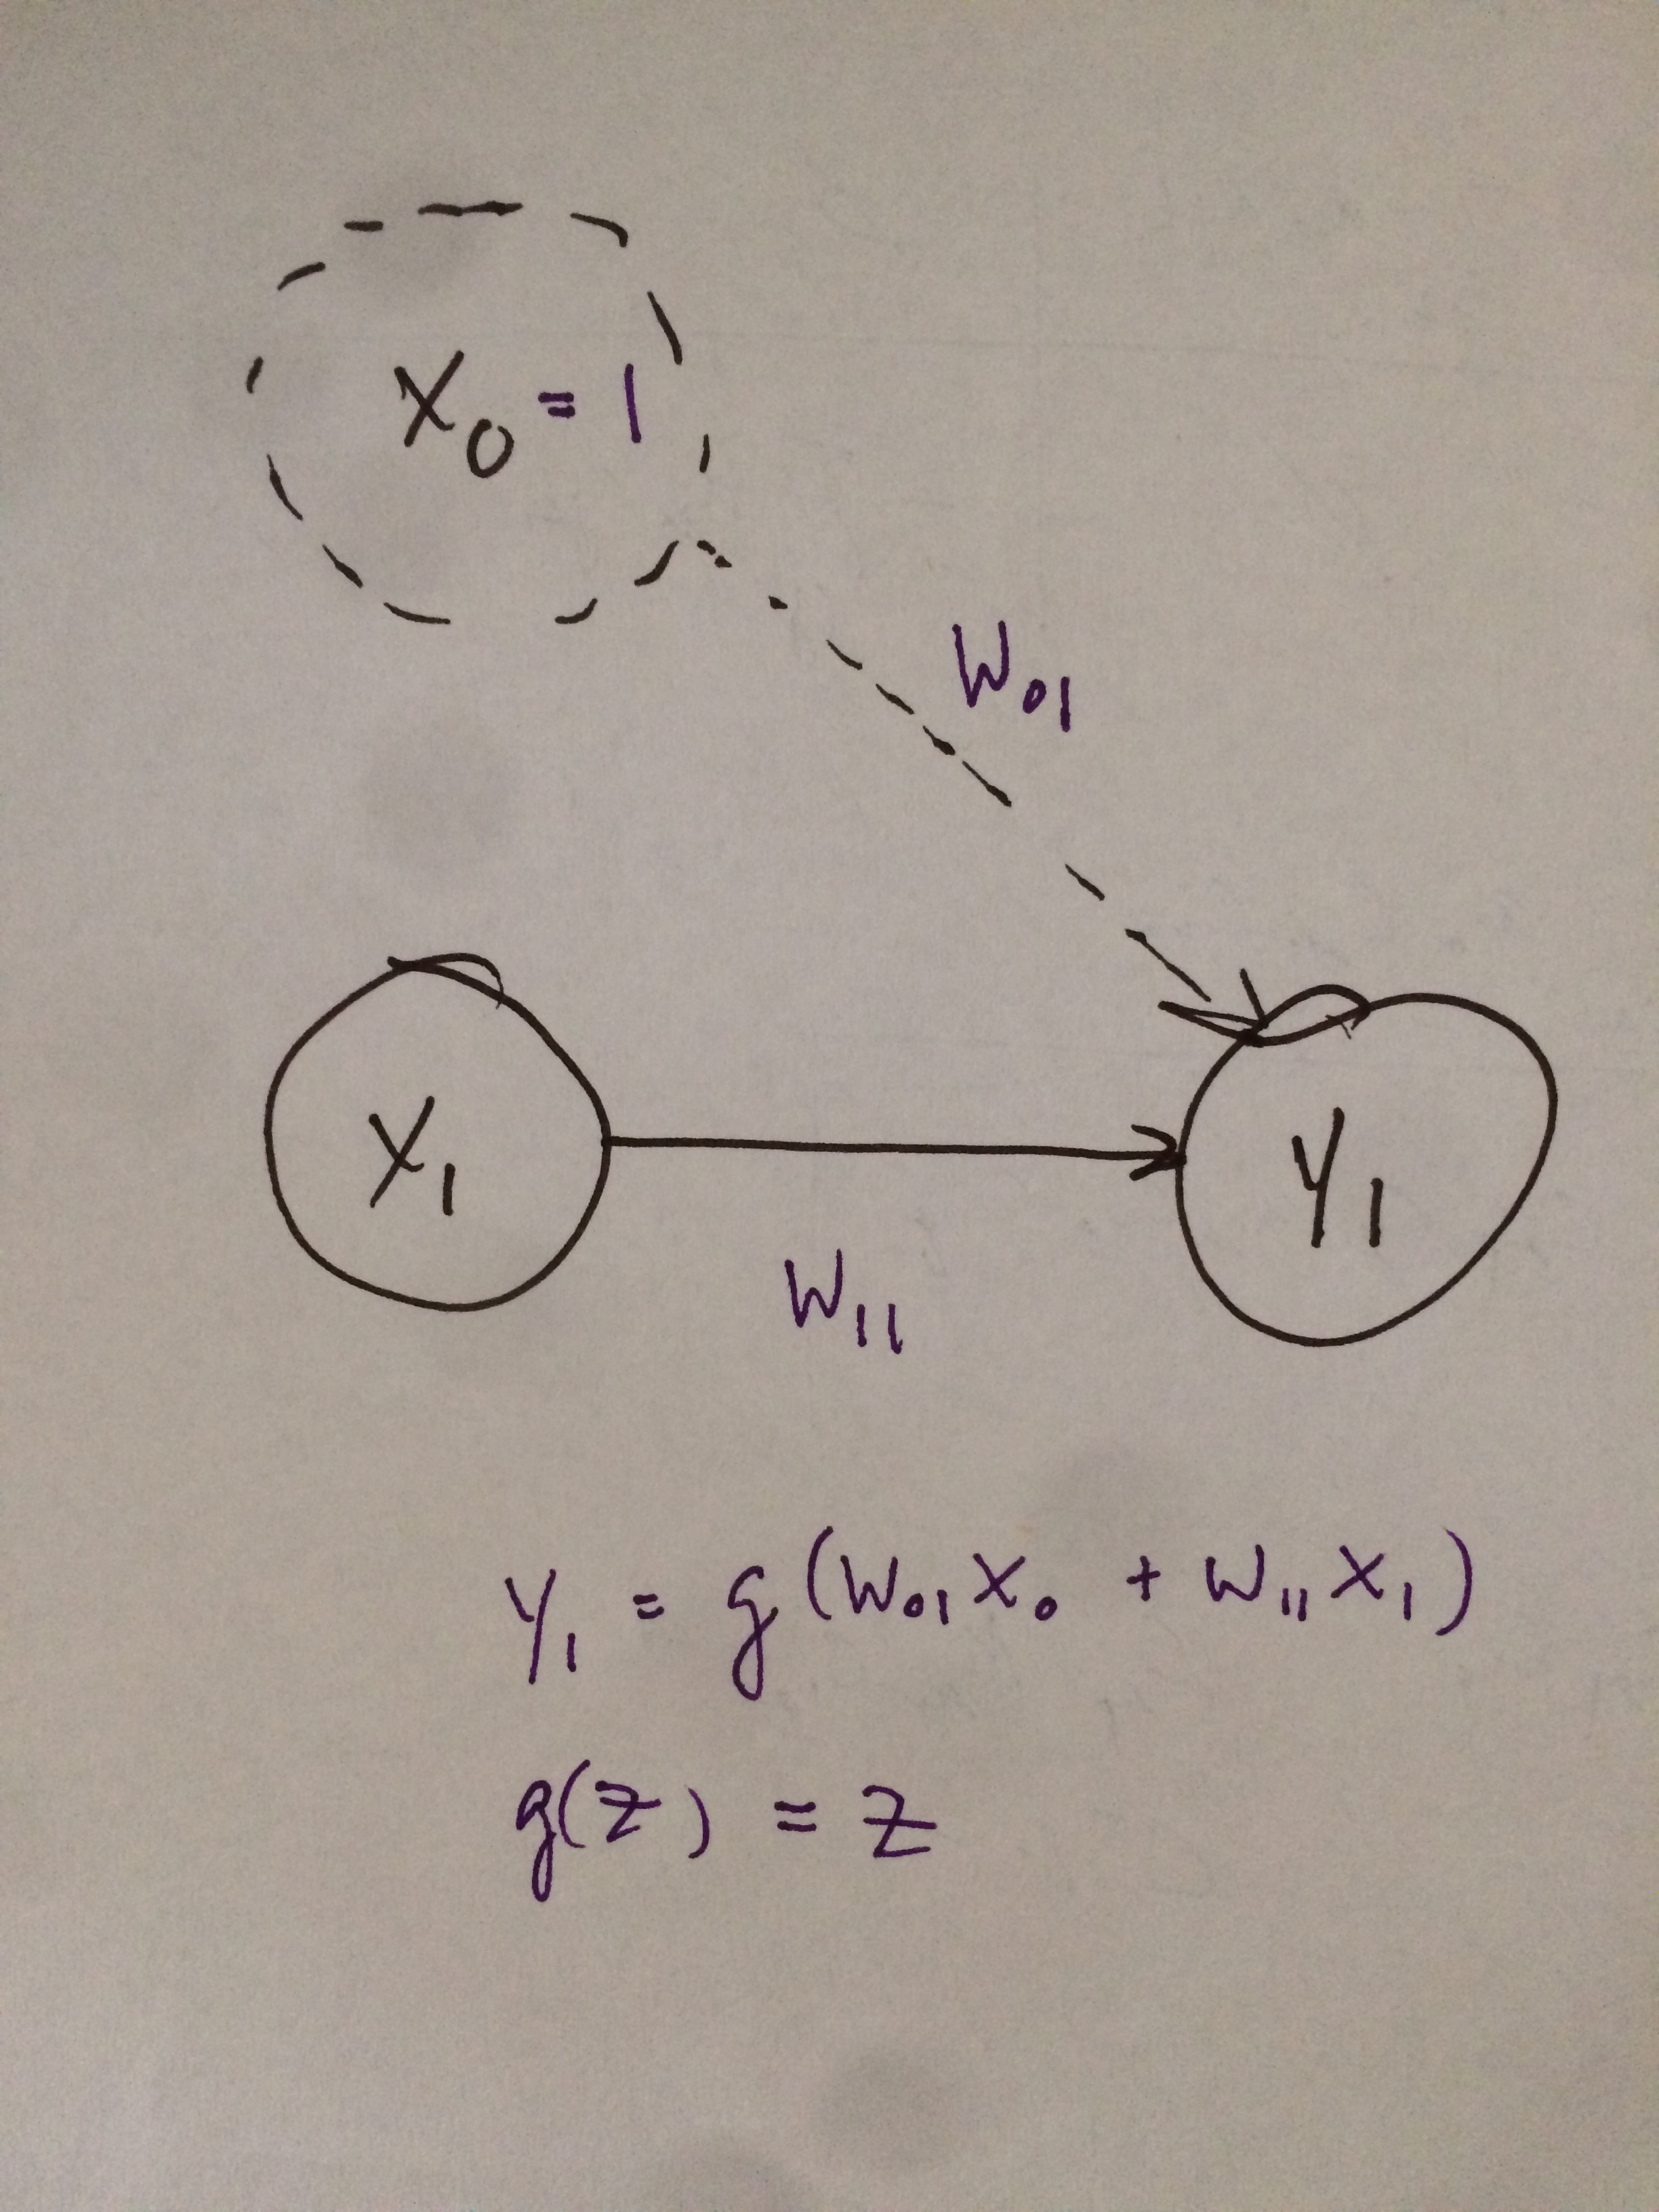 X₀ = 1
W₀₁
X₁
Y₁
W₁₁
Y₁ = g(W₀₁X₀ + W₁₁X₁)
g(z) = z